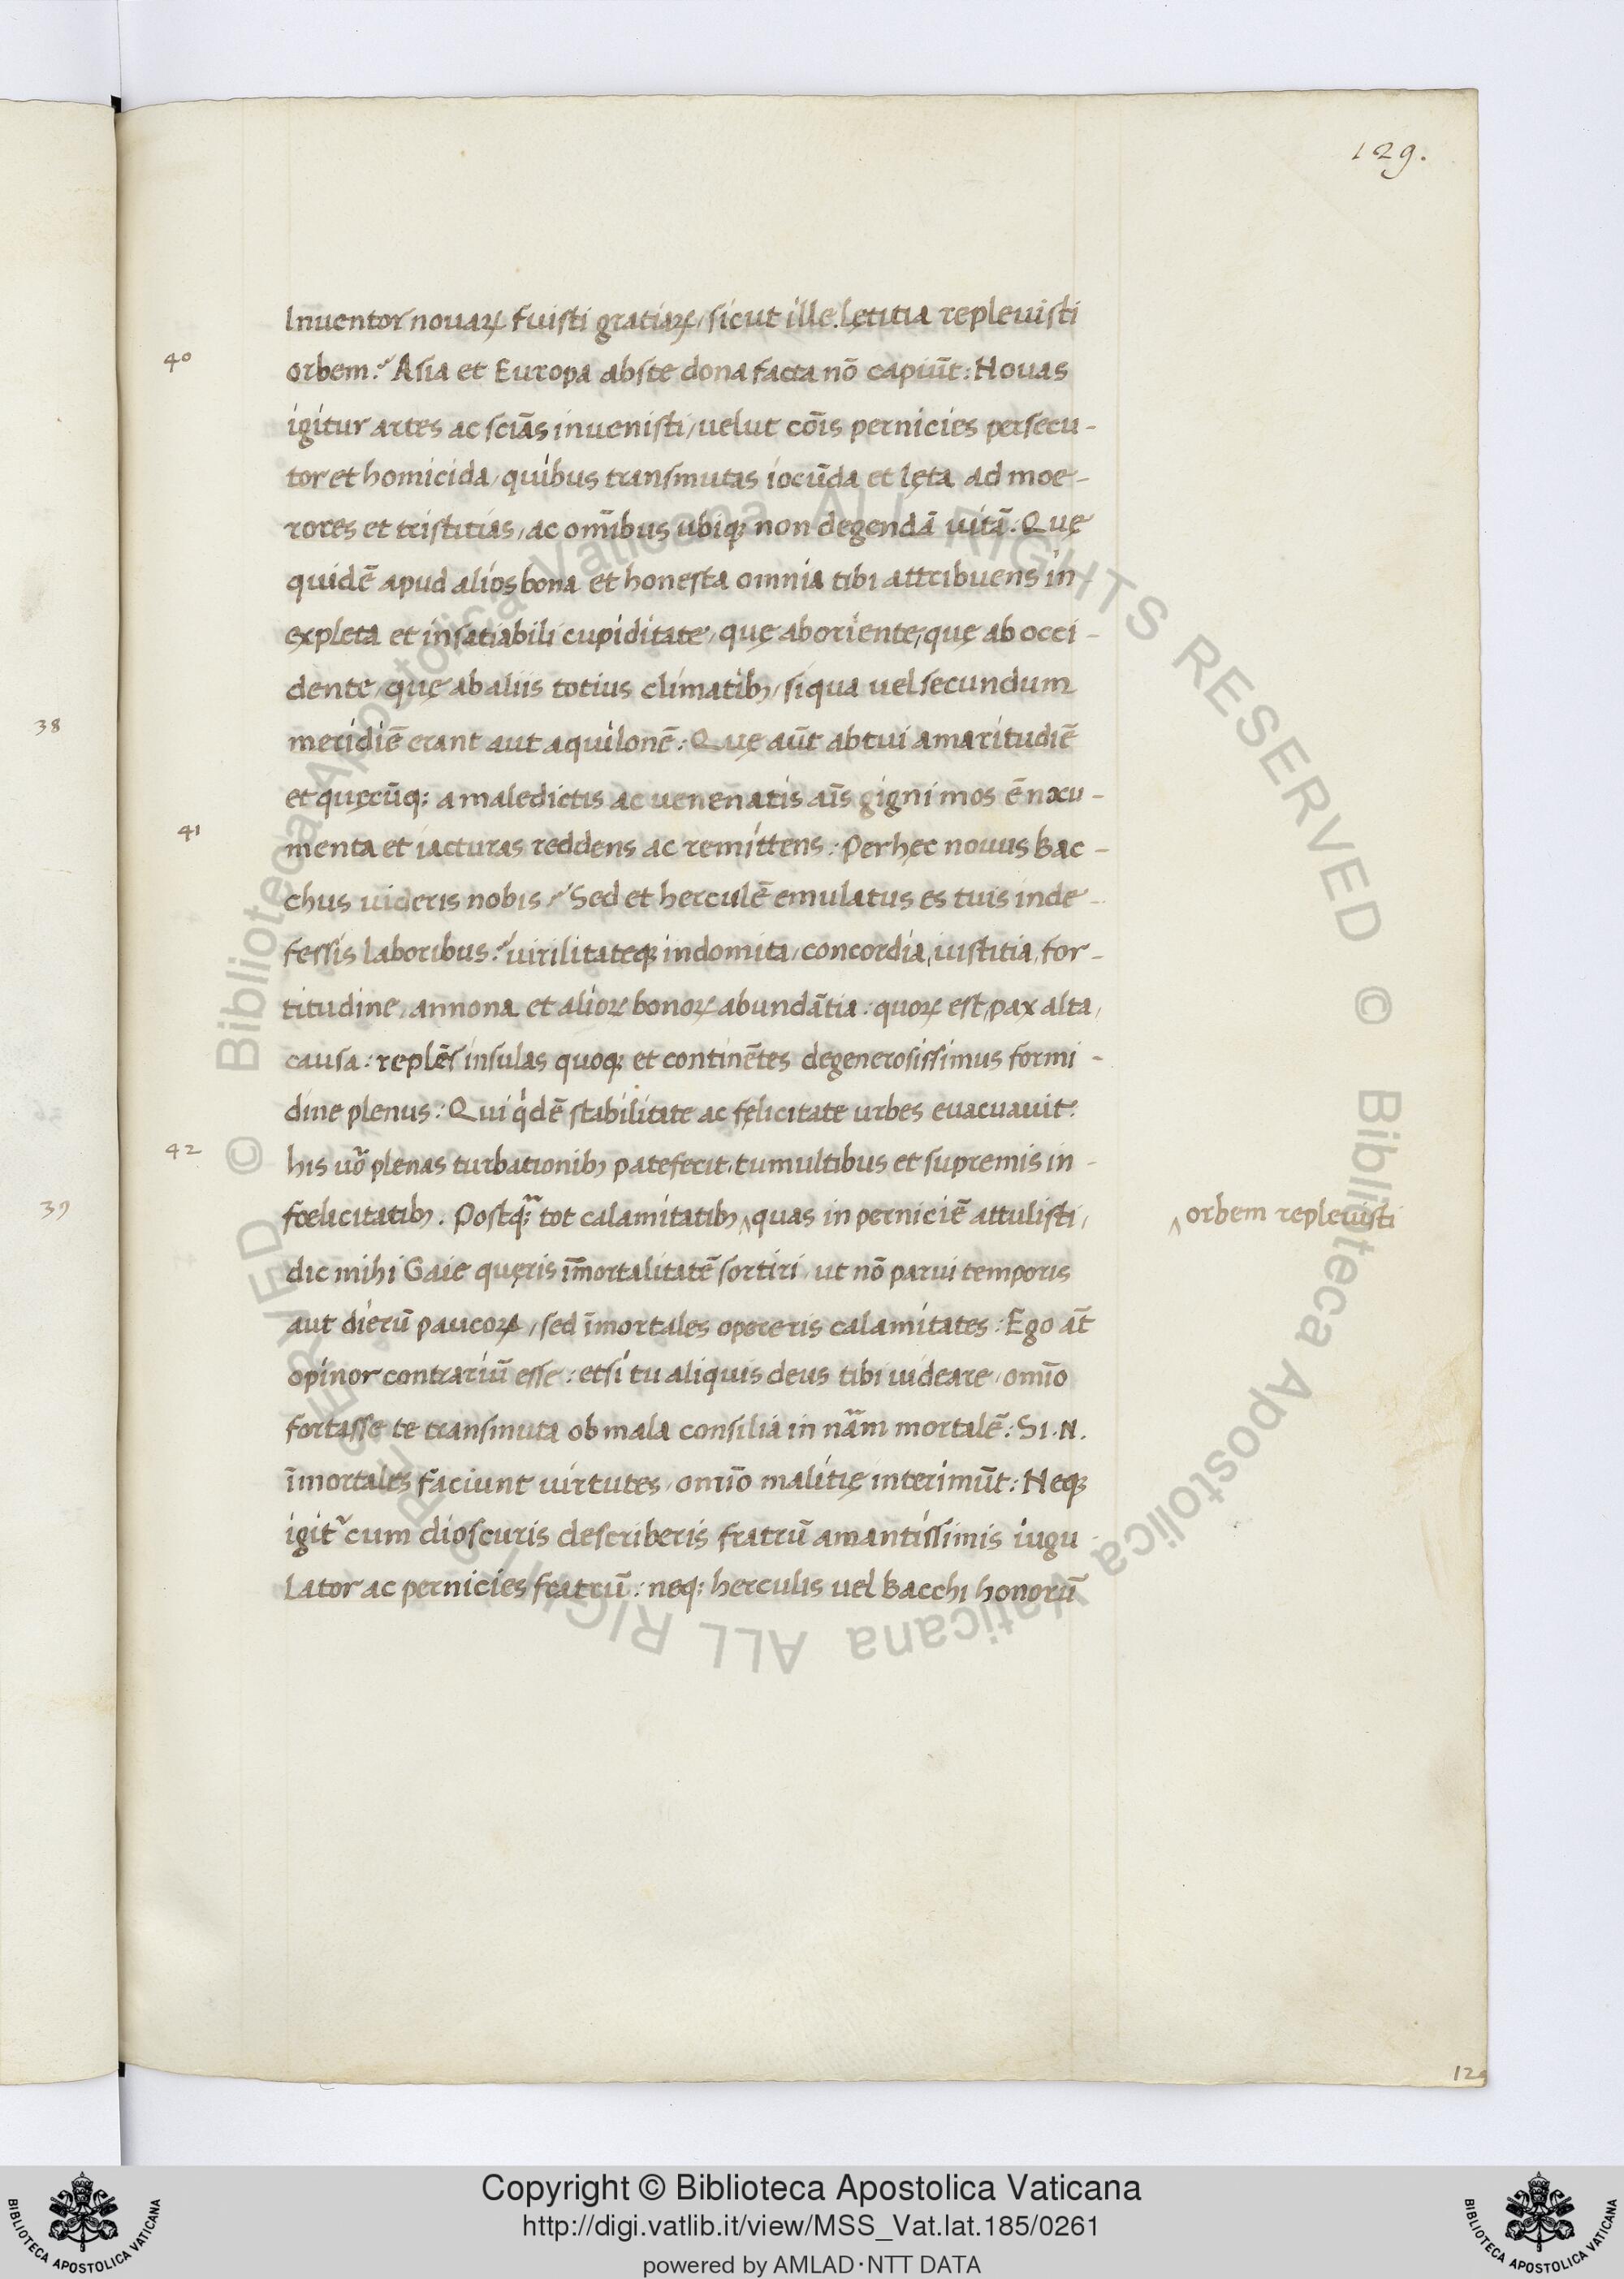 129.
Inuentor nouaꝝ fuisti gratiaꝝ / sicut ille. lętitia repleuisti
40
orbem? Asia et Europa abste dona facta nō capiūt: Nouas
igitur artes ac sciās inuenisti / uelut cōis pernicies persecu-
tor et homicida / quibus transmutas iocūda et lęta ad moe-
rores et tristitias / ac om̄ibus ubiqꝫ non degendā uitā: Quę
quidē apud alios bona et honesta omnia tibi attribuens in-
expleta et insatiabili cupiditate / quę ab oriente / quę ab occi-
dente / quę ab aliis totius climatibꝫ / siqua uel secundum
38
meridiē erant aut aquilonē: Quę aūt ab tui amaritudiē
et quęcūqꝫ a maledictis ac uenenatis aīs gigni mos ē nocu-
41
menta et iacturas reddens ac remittens: Per hęc nouus Bac-
chus uideris nobis? Sed et herculē emulatus es tuis inde-
fessis laboribus? uirilitateqꝫ indomita / concordia, iustitia, for-
titudine, annona et alioꝝ bonoꝝ abundātia: quoꝝ est, pax alta,
causa: replēs insulas quoqꝫ et continētes degenerosissimus formi-
dine plenus: Qui q̇dē stabilitate ac fęlicitate urbes euacuauit:
42
his uō plenas turbationibꝫ patefecit, tumultibus et supremis in-
39
fœlicitatibꝫ. Postq̄ tot calamitatibꝫ ‸ quas in perniciē attulisti,
‸ orbem repleuisti
dic mihi Gaie quęris īmortalitatē sortiri / ut nō parui temporis
aut dierū paucoꝝ / sed īmortales opereris calamitates: Ego āt
opinor contrariū esse: etsi tu aliquis deus tibi uideare / omīo
fortasse te transmuta ob mala consilia in nām mortalē: Si. N.
īmortales faciunt uirtutes / omīo malitię interimūt: Neqꝫ
igit᷑ cum dioscuris describeris fratrū amantissimis iugu
lator ac pernicies fratrū: neqꝫ herculis uel Bacchi honorū
129
Copyright © Biblioteca Apostolica Vaticana
http://digi.vatlib.it/view/MSS_Vat.lat.185/0261
powered by AMLAD·NTT DATA
BIBLIOTECA APOSTOLICA VATICANA
BIBLIOTECA APOSTOLICA VATICANA
© Biblioteca Apostolica Vaticana ALL RIGHTS RESERVED © Biblioteca Apostolica Vaticana ALL RIGHTS RESERVED